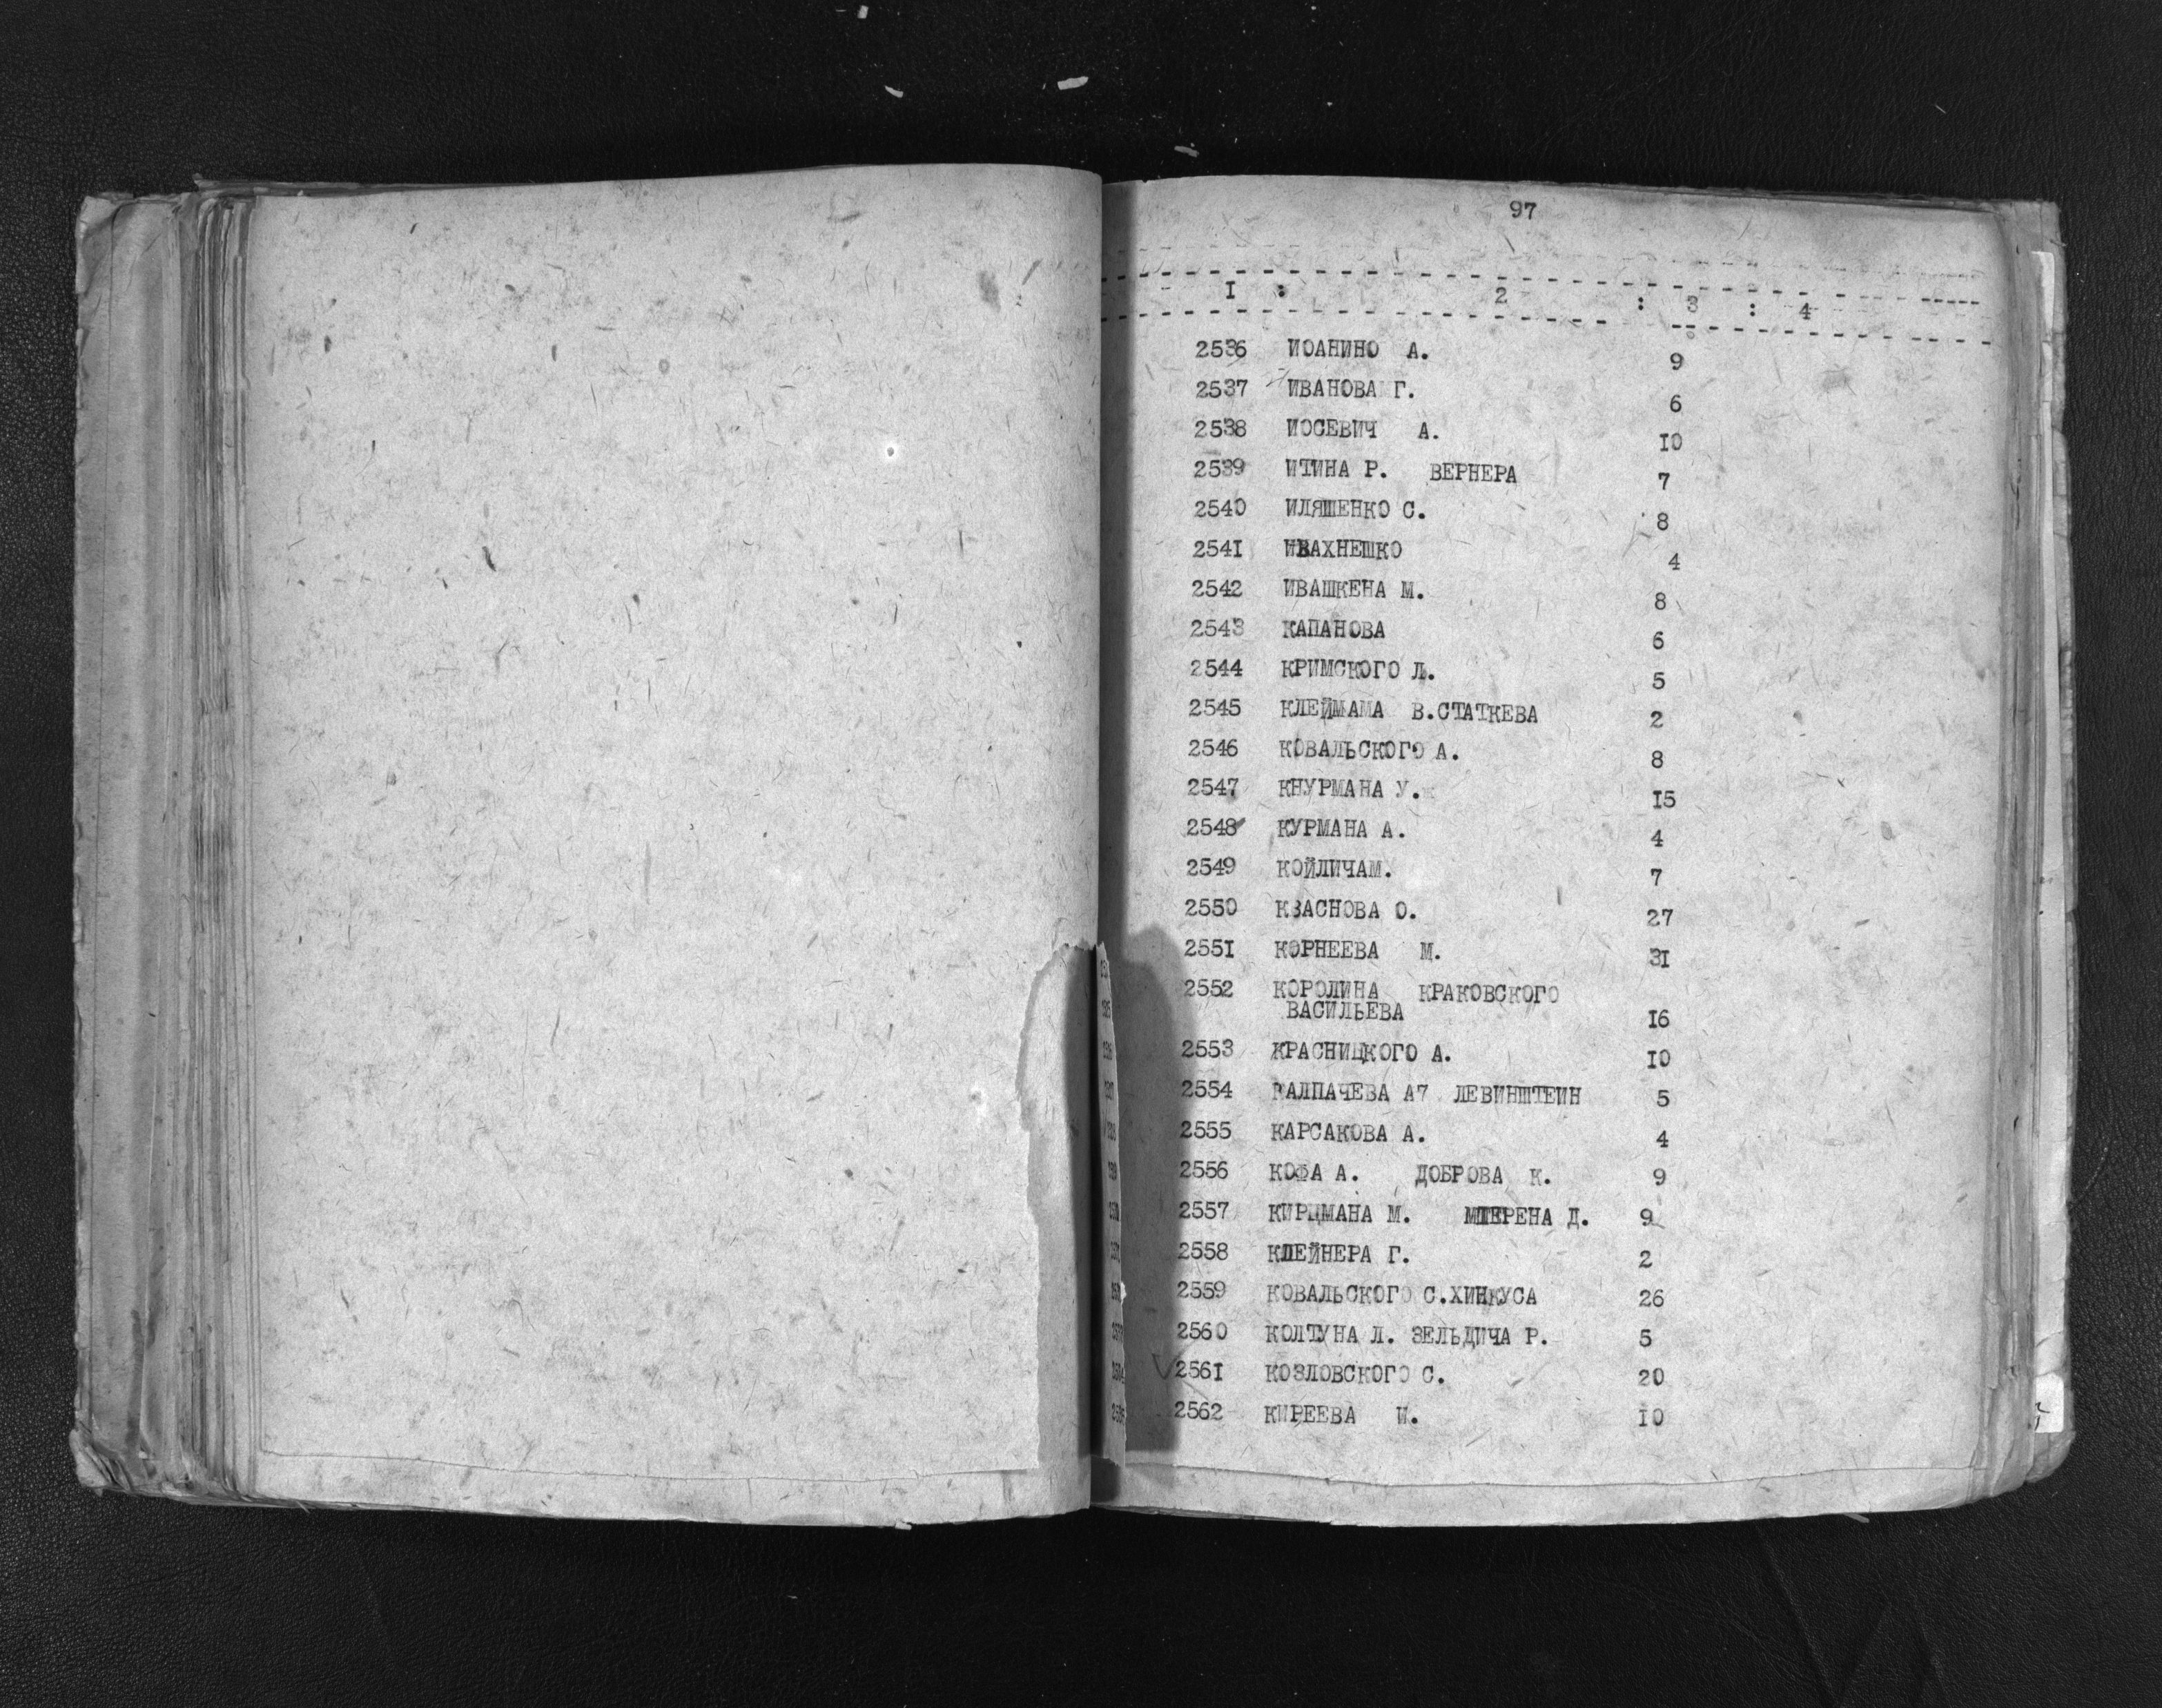 97
I : 2 : 3 : 4
2536 ИОАНИНО А. 9
2537 ИВАНОВА Г. 6
2538 ИОСЕВИЧ А. 10
2539 ИТИНА Р. ВЕРНЕРА 7
2540 ИЛЯШЕНКО С. 8
2541 ИВАХНЕШКО 4
2542 ИВАШКЕНА М. 8
2543 КАПАНОВА 6
2544 КРИМСКОГО Л. 5
2545 КЛЕЙМАМА В.СТАТКЕВА 2
2546 КОВАЛЬСКОГО А. 8
2547 КНУРМАНА У. I5
2548 КУРМАНА А. 4
2549 КОЙЛИЧАМ. 7
2550 КВАСНОВА О. 27
255I КОРНЕЕВА М. 3I
2552 КОРОЛИНА КРАКОВСКОГО
ВАСИЛЬЕВА I6
2553 КРАСНИЦКОГО А. I0
2554 КАЛПАЧЕВА А7 ЛЕВИНШТЕИН 5
2555 КАРСАКОВА А. 4
2556 КОФА А. ДОБРОВА К. 9
2557 КИРЦМАНА М. Д. 9
2558 КЛЕЙНЕРА Г. 2
2559 КОВАЛЬСКОГО С.ХИНКУСА 26
2560 КОЛТУНА Л. ЗЕЛЬДИЧА Р. 5
256I КОЗЛОВСКОГО С. 20
2562 КИРЕЕВА И. I0